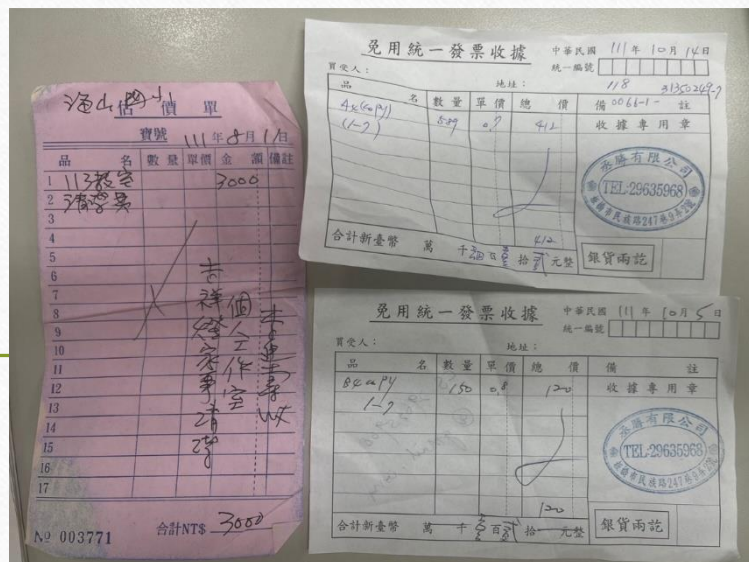 估價單
寶號 111年8月11日
品名 數量 單價 金額 備註
1 113教室 3000
2 清潔費
3
4
5
6
7
8
9
10
11
12
13
14
15
16
17
吉祥
家事清潔
個人工作室
№ 003771 合計NT$ 3000
免用統一發票收據
中華民國 111年10月14日
統一編號
買受人：
地址：
118 31350249-7
品名 數量 單價 總價 備註
0066-1-
A4copy 589 0.7 412 收據專用章
(1-7)
丞勝有限公司
TEL:29635968
板橋市民族路247巷9弄2號
412
合計新臺幣 萬 千 百 拾 元整
銀貨兩訖
免用統一發票收據
中華民國 111年10月5日
統一編號
買受人：
地址：
品名 數量 單價 總價 備註
B4copy 150 0.8 120 收據專用章
1-7
丞勝有限公司
TEL:29635968
板橋市民族路247巷9弄2號
120
合計新臺幣 萬 千 百 拾 元整
銀貨兩訖